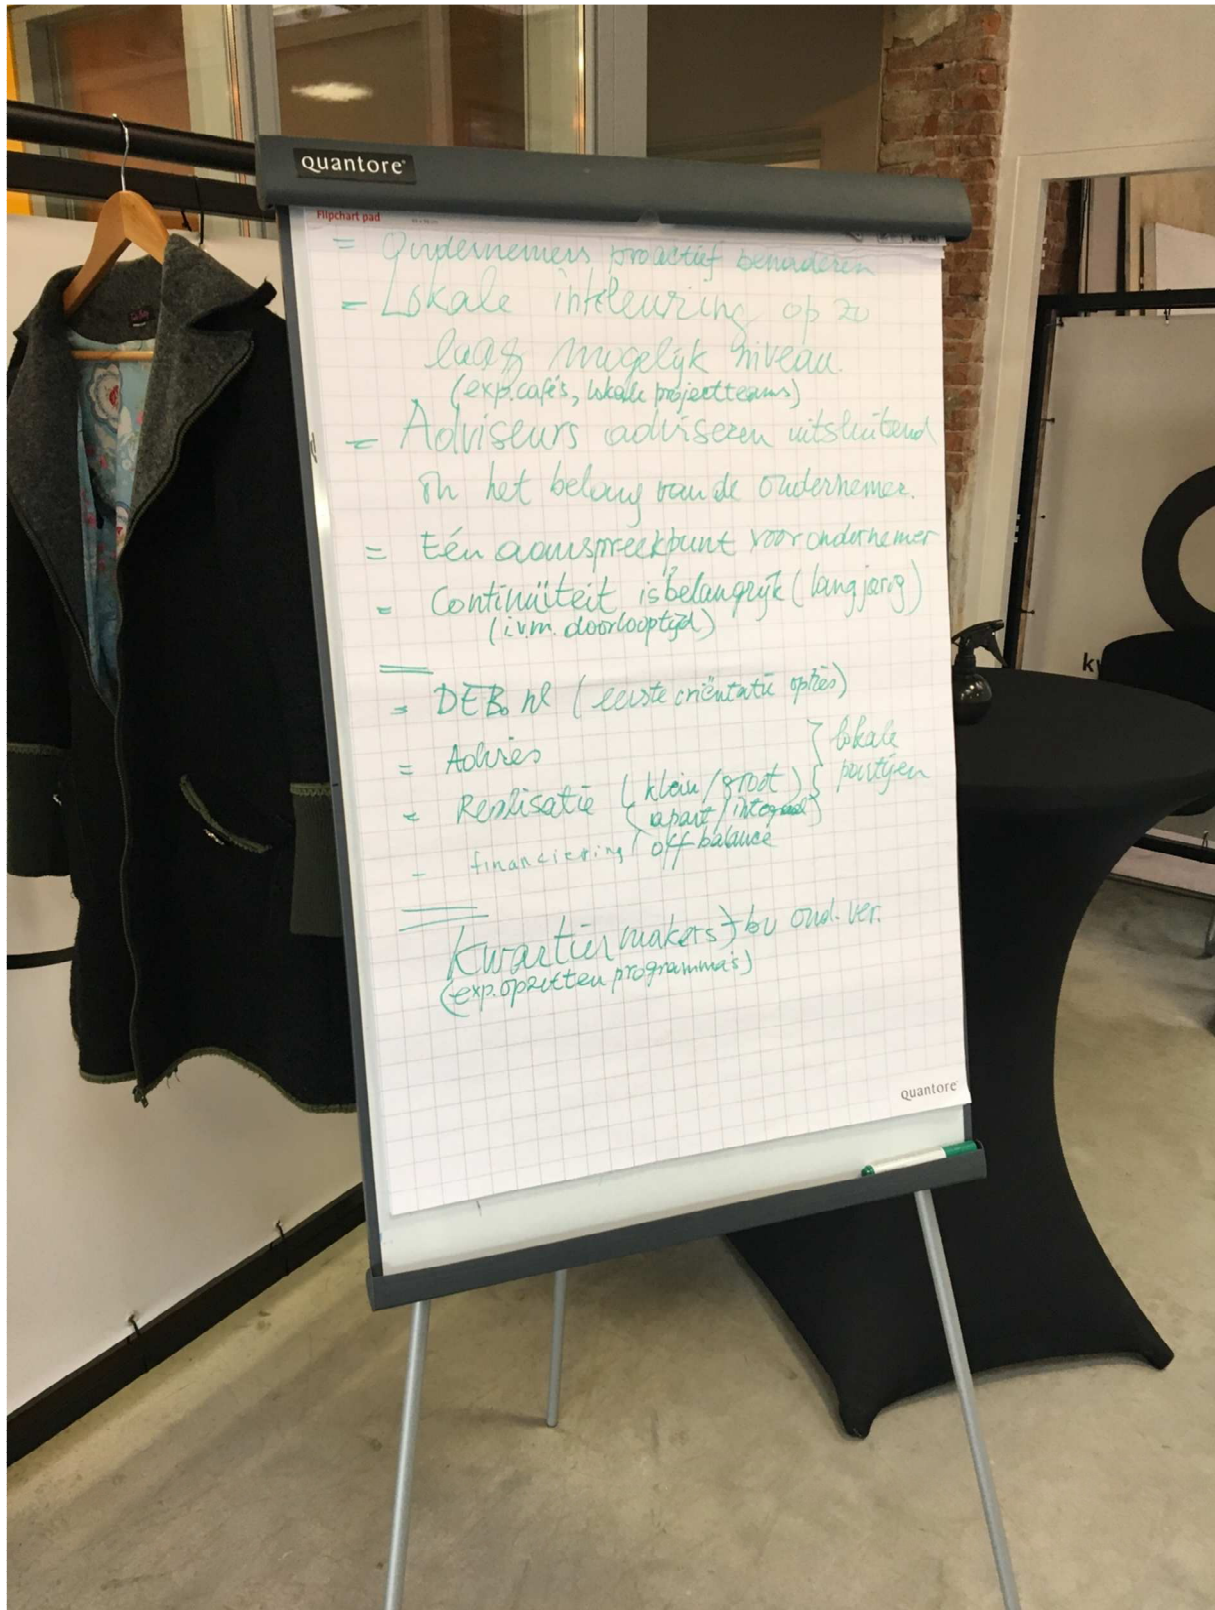 Quantore
Flipchart pad
= Ondernemers proactief benaderen
= Lokale inkleuring op zo
laag mogelijk niveau.
(exp.cafés, lokale projectteams)
= Adviseurs adviseren uitsluitend
in het belang van de ondernemer.
= Eén aanspreekpunt voor ondernemer
= Continuïteit is belangrijk (langjarig)
(i.v.m. doorlooptijd)
= DEB.nl (eerste oriëntatie opties)
= Advies
= Realisatie (klein/groot) } lokale partijen
(apart/integraal)
- financiering / off balance
Kwartiermakers } bv ond. ver.
(exp. opzetten programma's)
quantore